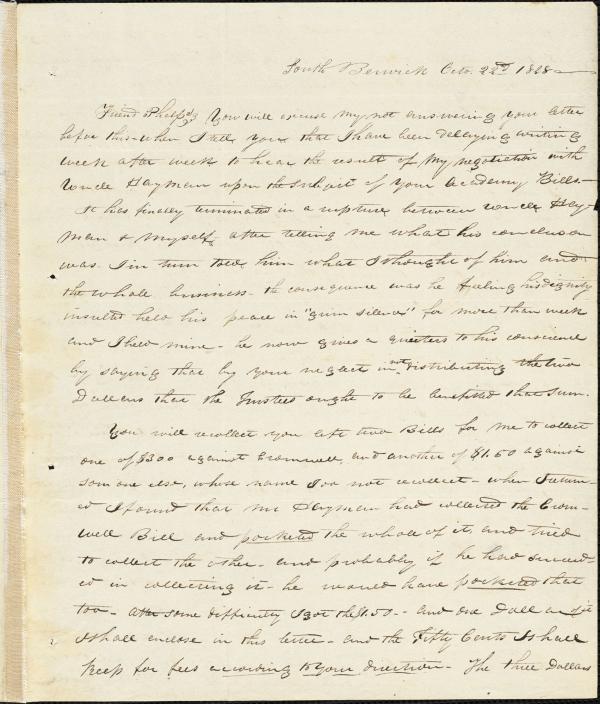 South Berwick Octo. 22nd 1828
Friend Phelps, You will excuse my not answering your letter
before this when I tell you that I have been delaying writing
week after week to hear the result of my negotiation with
Uncle Hayman upon the subject of your Academy Bills.
It has finally terminated in a rupture between uncle Hay-
man & myself, after telling me what his conclusion
was. I in turn told him what I thought of him and
the whole business - the consequence was he feeling his dignity
insulted held his peace in "grim silence" for more than week
and I held mine - he now gives a quietus to his conscience
by saying that by your neglect in not distributing the two
Dollars that the Trustees ought to be benefitted that sum.
You will recollect you left two Bills for me to collect
one of $300 against Cromwell, and another of $1.50 against
some one else, whose name I do not recollect - when I return-
ed I found that Mr Hayman had collected the Crom-
well Bill and pocketed the whole of it, and tried
to collect the other - and probably if he had succeed-
ed in collecting it - he would have pocketed that
too - after some difficulty I got the $1.50 - and one Dollar of it
I shall enclose in this letter - and the Fifty Cents I shall
keep for fees according to your direction - The three Dollars